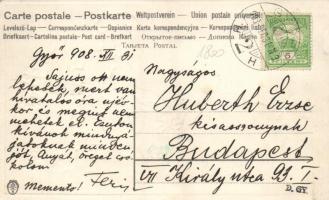 Carte postale – Postkarte
Weltpostverein – Union postale universelle
Levelező-Lap – Correspondenzkarte – Dopisnice
Karta korespondencyjna – Korespondenční lístek
Briefkaart – Cartolina postale – Post card – Brefkort
TARJETA POSTAL
Győr 908. XII 31
Sajnos ott nem
lehetek, mert van
hivatalos óra újév-
kor és megint nem
mehetek el. Ezuton
kivánok mindnyá-
jatoknak minden
jót. Anyát, öreget csó-
kolom
Feri
Memento!
Nagyságos
Huberth Erzse
kisasszonynak
Budapest
VII Király utca 93. I.
D. GY.
1800